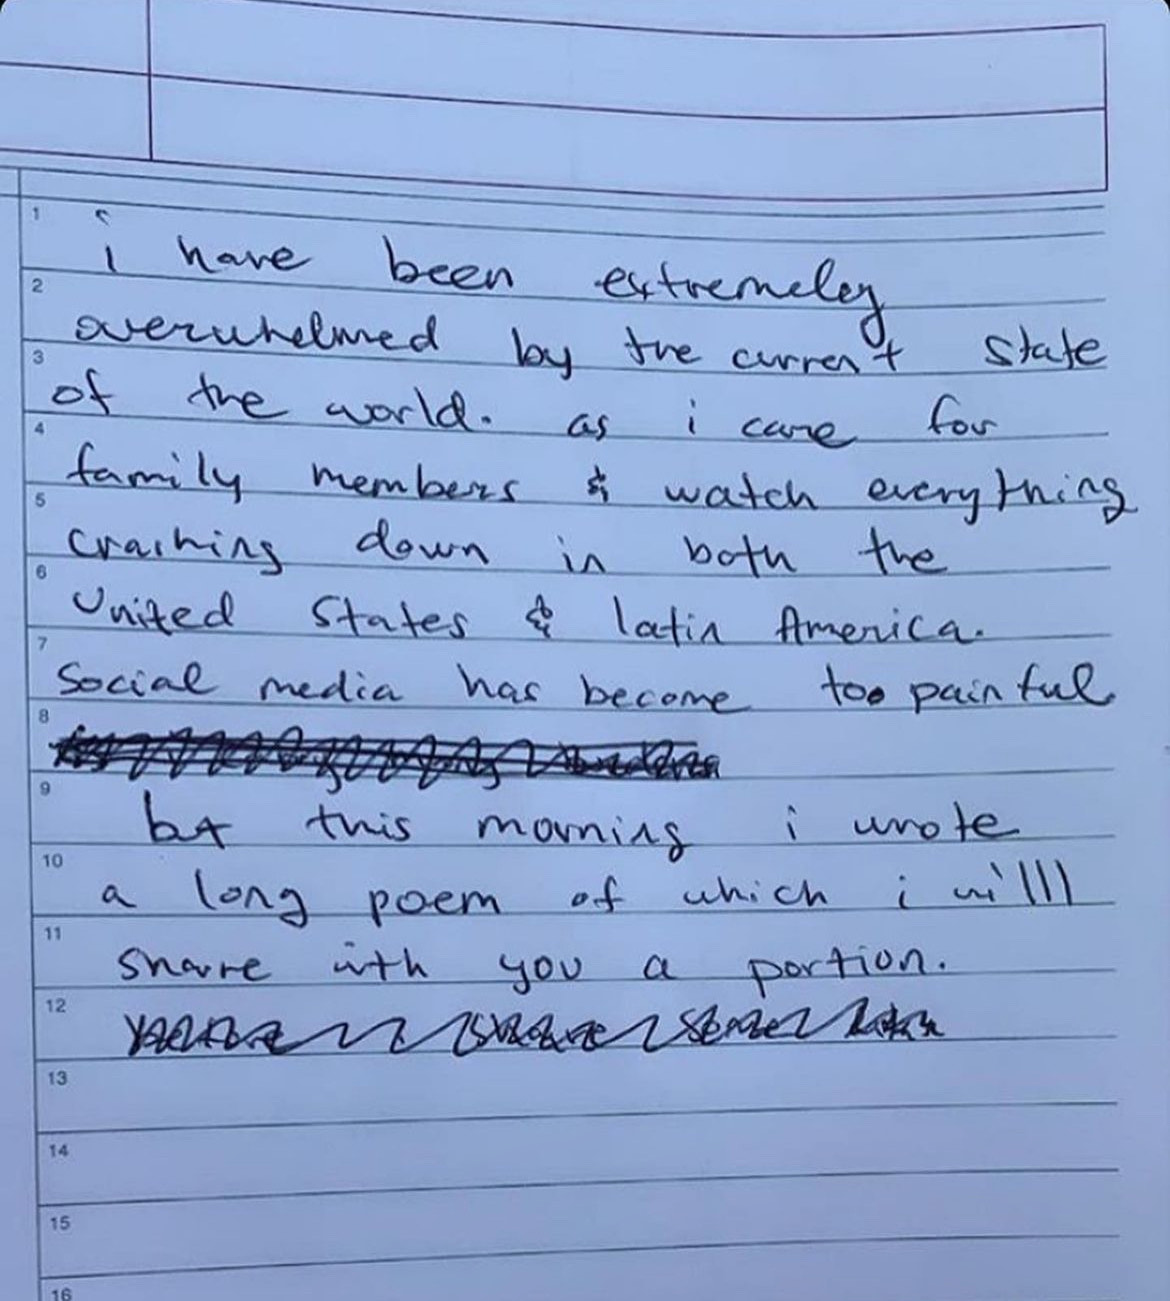 1
i have been extremeley
2
overwhelmed by the current state
3
of the world. as i care for
4
family members & watch everything
5
crashing down in both the
6
United States & latin America.
7
Social media has become too painful
8
9
but this morning i wrote
10
a long poem of which i willl
11
share with you a portion.
12
13
14
15
16